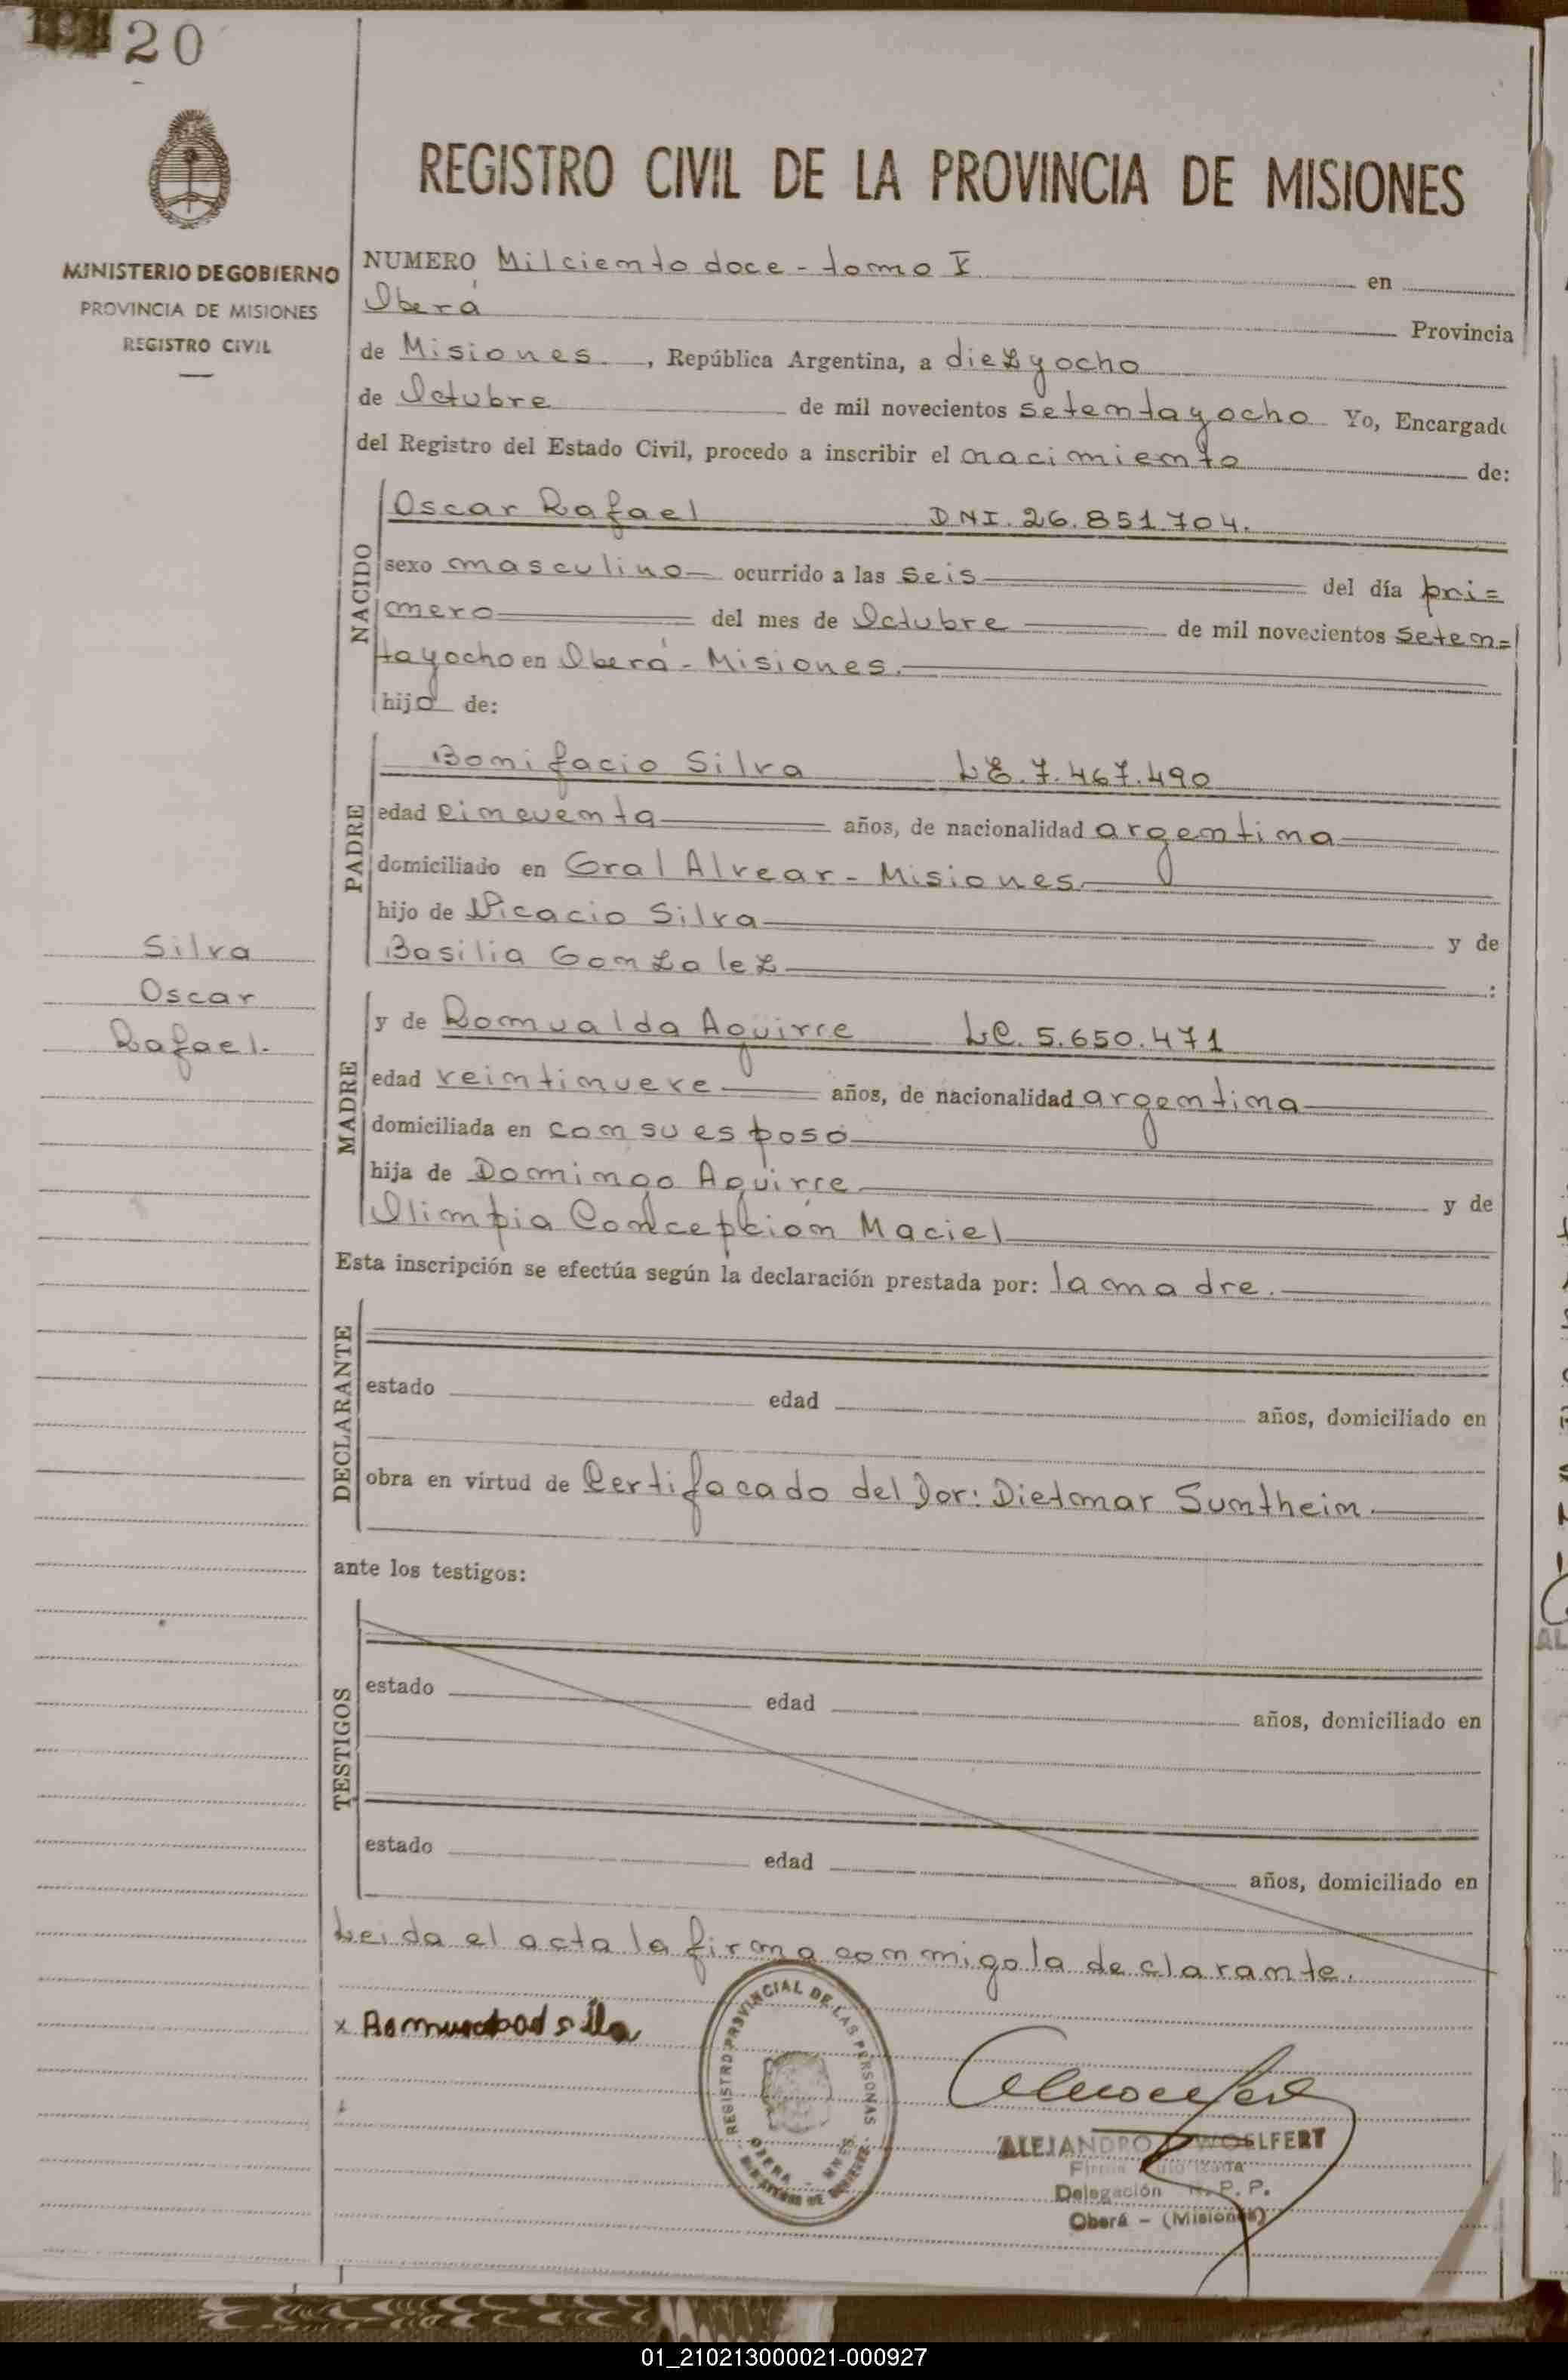 20
MINISTERIO DE GOBIERNO
PROVINCIA DE MISIONES
REGISTRO CIVIL
REGISTRO CIVIL DE LA PROVINCIA DE MISIONES
NUMERO Milciento doce - tomo V en
Oberá Provincia
de Misiones, República Argentina, a diezyocho
de Octubre de mil novecientos setentayocho Yo, Encargado
del Registro del Estado Civil, procedo a inscribir el nacimiento de:
NACIDO
Oscar Rafael DNI. 26.851.704.
sexo masculino ocurrido a las seis del día pri=
mero del mes de Octubre de mil novecientos seten=
tayocho en Oberá - Misiones.
hijo de:
PADRE
Bonifacio Silva LE. 7.467.490
edad cincuenta años, de nacionalidad argentina
domiciliado en Gral Alvear - Misiones
hijo de Nicacio Silva y de
Basilia Gonzalez :
Silva
Oscar
Rafael.
MADRE
y de Romualda Aguirre LC. 5.650.471
edad veintinueve años, de nacionalidad argentina
domiciliada en con su esposo
hija de Domingo Aguirre y de
Olimpia Concepción Maciel
Esta inscripción se efectúa según la declaración prestada por: la madre.
DECLARANTE
estado edad años, domiciliado en
obra en virtud de Certifacado del Dor: Dietmar Suntheim
ante los testigos:
TESTIGOS
estado edad años, domiciliado en
estado edad años, domiciliado en
Leida el acta la firma conmigo la declarante.
x
REGISTRO PROVINCIAL DE LAS PERSONAS
OBERA - MNES.
ALEJANDRO WOELFERT
Firma Autorizada
Delegación R. P. P.
Oberá - (Misiones)
01_210213000021-000927